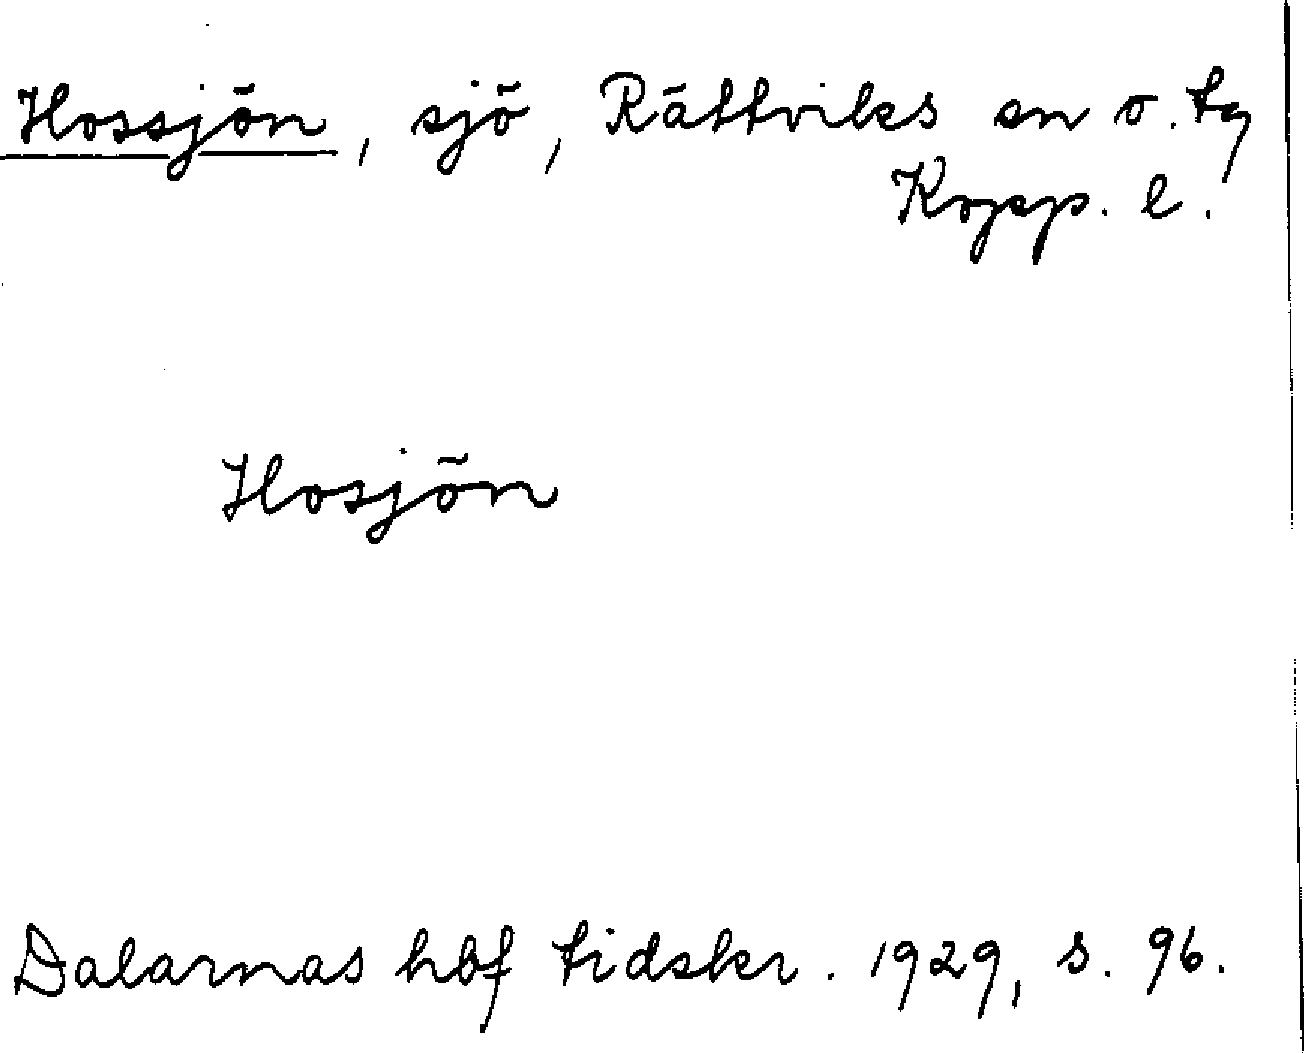 Hossjön, sjö, Rättviks sn o. tg
Kopp. l.
Hosjön
Dalarnas hbf tidskr. 1929, s. 96.